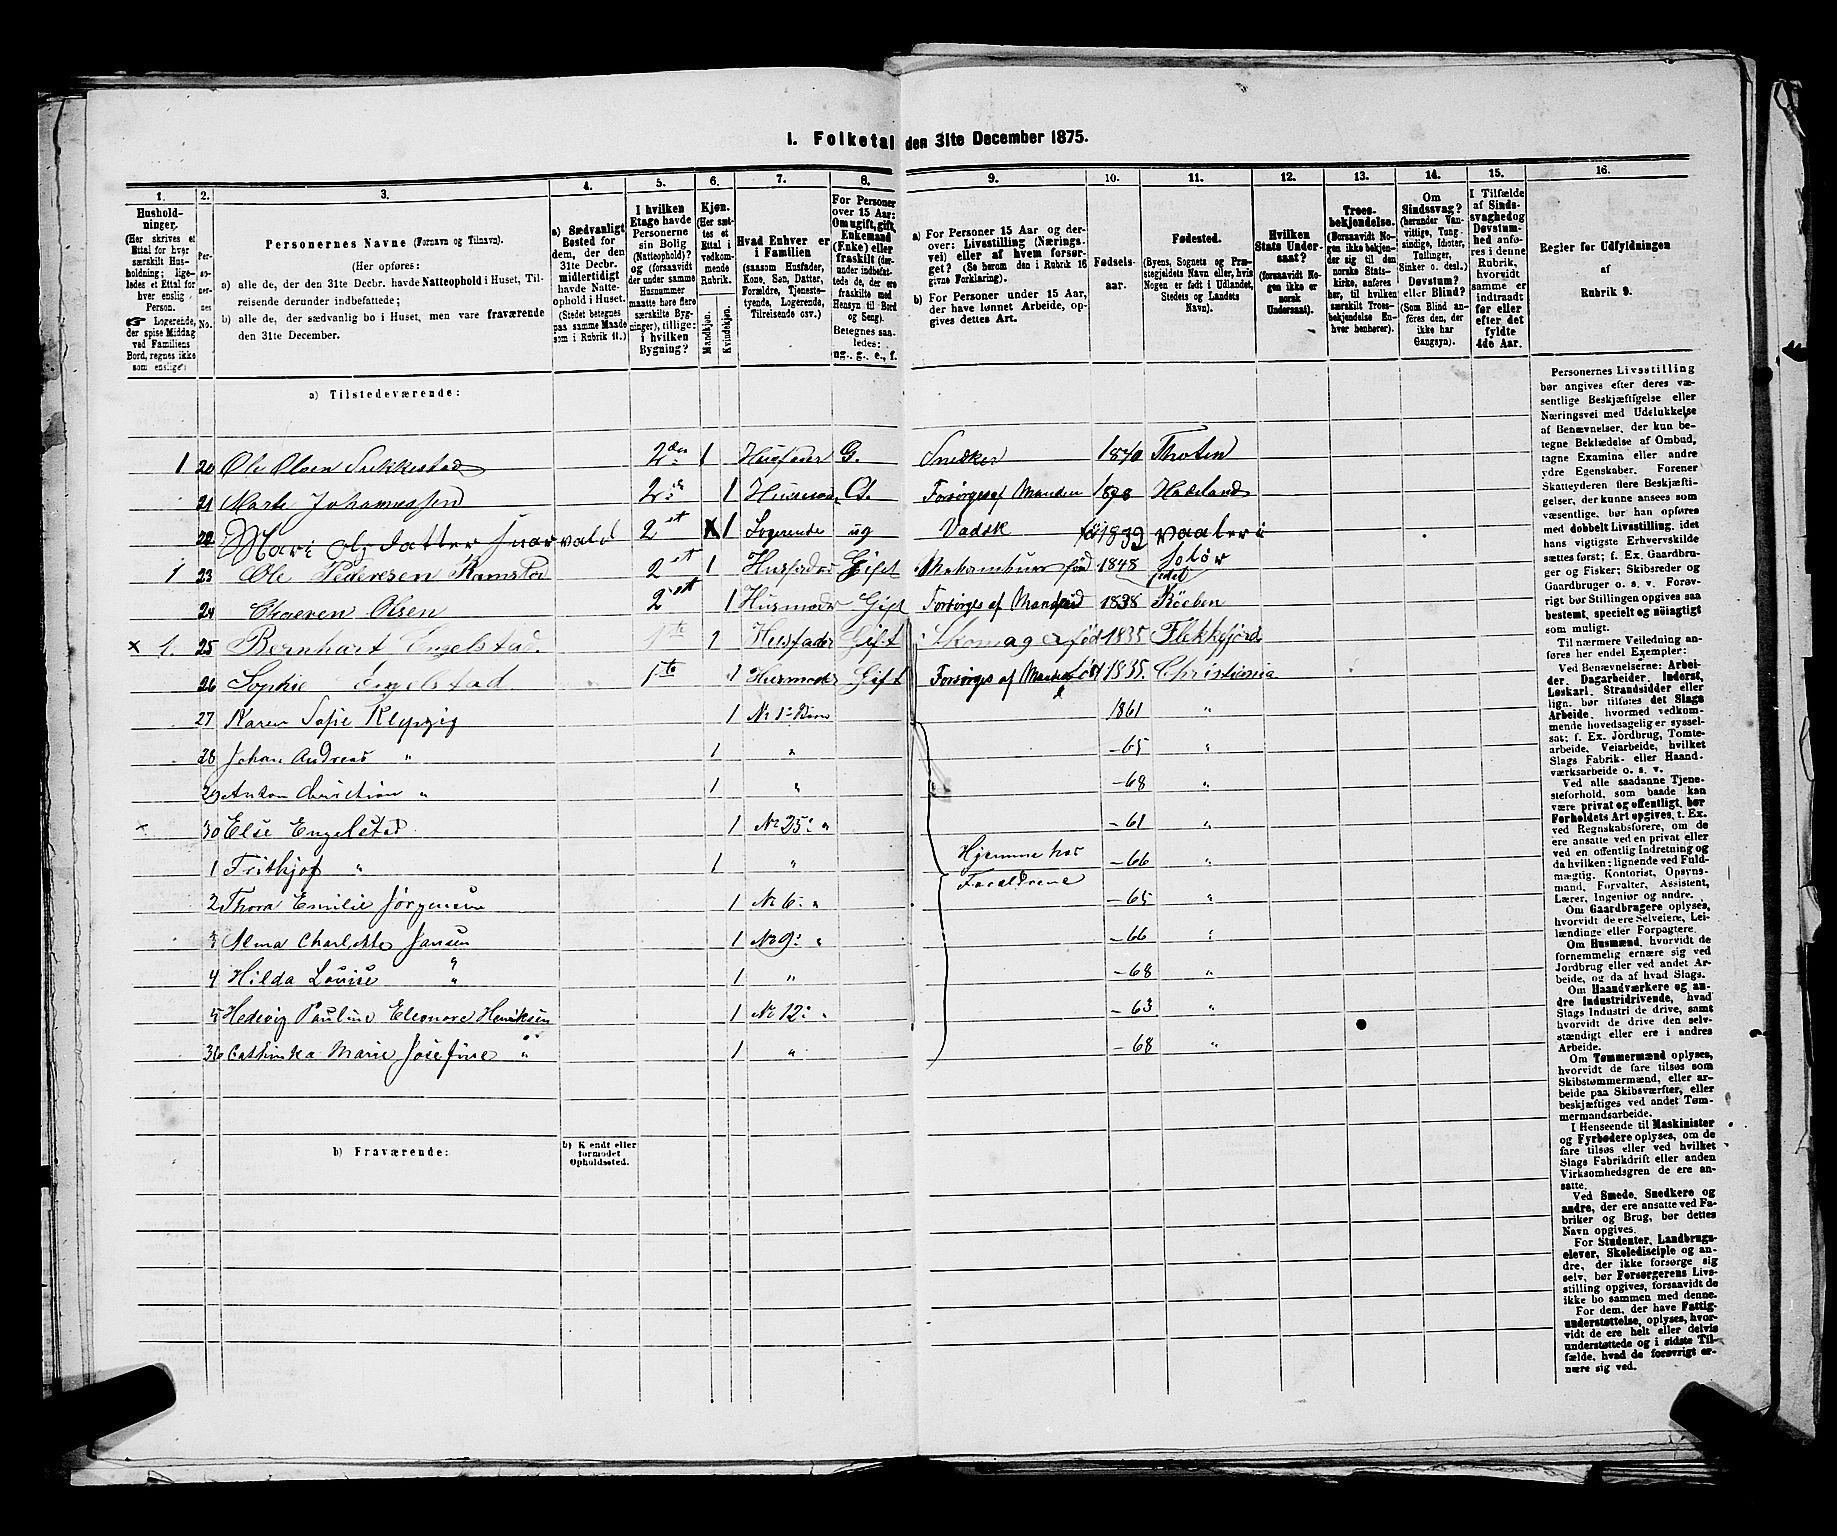 I. Folketal den 31te December 1875.
1. 2. 3. 4. 5. 6. 7. 8. 9. 10. 11. 12. 13. 14. 15. 16.
Hushold-
ninger.
(Her skrives et
Ettal for hver
særskilt Hus-
holdning; lige-
ledes et Ettal for
hver enslig
Person.
☞ Logerende,
der spise Middag
ved Familiens
Bord, regnes ikke
som enslige)
Per-
so-
ner-
nes
No.
Personernes Navne (Fornavn og Tilnavn).
(Her opføres:
a) alle de, der den 31te Decbr. havde Natteophold i Huset, Til-
reisende derunder indbefattede;
b) alle de, der sædvanlig bo i Huset, men vare fraværende
den 31te December.
a) Sædvanligt
Bosted for
dem, der den
31te Decbr.
midlertidigt
havde Natte-
ophold i Huset.
(Stedet betegnes
paa samme Maade
som i Rubrik 11.)
I hvilken
Etage havde
Personerne
sin Bolig
(Natteophold)?
og (forsaavidt
der under samme
Husnummer
maatte høre flere
særskilte Byg-
ninger), tillige:
i hvilken
Bygning?
Kjøn.
(Her sæt-
tes et
Ettal i
vedkom-
mende
Rubrik.
Mandkjøn.
Kvindekjøn.
Hvad Enhver er
i Familien
(saasom Husfader,
Kone, Søn, Datter,
Forældre, Tjeneste-
tyende, Logerende,
Tilreisende osv.)
For Personer
over 15 Aar:
Om ugift, gift,
Enkemand
(Enke) eller
fraskilt (der-
under indbefat-
tede de, der ere
fraskilte med
Hensyn til Bord
og Seng).
Betegnes saa-
ledes:
ug., g., e., f.
a) For Personer 15 Aar og der-
over: Livsstilling (Nærings-
vei) eller af hvem forsør-
get? (Se herom den i Rubrik 16
givne Forklaring).
b) For Personer under 15 Aar,
der have lønnet Arbeide, op-
gives dettes Art.
Fødsels-
aar.
Fødested.
(Byens, Sognets og Præ-
stegjeldets Navn eller, hvis
Nogen er født i Udlandet,
Stedets og Landets
Navn).
Hvilken
Stats Under-
saat?
(forsaavidt No-
gen ikke er
norsk
Undersaat).
Troes-
bekjendelse.
(Forsaavidt No-
gen ikke bekjen-
der sig til den
norske Stats-
kirke, anføres
her, til hvilken
særskilt Troes-
bekjendelse En-
hver henhører).
Om
Sindssvag?
(herunder Van-
vittige, Tung-
sindige, Idioter,
Tullinger,
Sinker o. desl.)
Døvstum?
eller Blind?
(Som Blind an-
føres den, der
ikke har
Gangsyn).
I Tilfælde
af Sinds-
svaghed og
Døvstum-
hed anfø-
res i denne
Rubrik,
hvorvidt
samme er
indtraadt
før eller
efter det
fyldte
4de Aar.
Regler for Udfyldningen
af
Rubrik 9.
a) Tilstedeværende:
1 20 Ole Olsen Sukkestad 2den 1 Husfader G. Snedker 1840 Thoten
21 Marte Johannessen 2 1 Husmod. G. Forsørges af Manden 1828 Hadeland
22 Mari Olsdatter 2et 1 Logerende ug Vadsk fø 1832 vaaler i Solør
1 23 Ole Pedersen Ramstad 2et 1 Husfader Gift fød 1848
24 Olsen 2et 1 Husmoder Gift Forsørges af Mand fød 1838
x 1. 25 Bernhart Engelstad. 1te 1 Husfader Gift Skomager fød 1835 Flekkefjord
26 Sophie Engelstad 1te 1 Husmoder Gift Forsørges af Manden fød 1835. Christiania
27 Karen Sofie 1 No 1s Barn 1861 "
28 Johan Andreas " 1 " -65 "
29 Anton Christian " 1 " -68 "
x 30 Else Engelstad 1 No 25s " -61 "
1 Frithjof " 1 " Hjemme hos -66 "
Forældrene
2 Thora Emilie Jørgensen 1 No 6s " -65 "
3 Alma Charlotte Jansen 1 No 9s " -66 "
4 Hilda Louise " 1 " -68 "
5 Hedevig Pauline Eleonore Henriksen 1 No 12s " -63 "
36 Cathinka Marie Josefine " 1 " -68 "
b) Fraværende:
b) Kjendt eller
formodet
Opholdssted.
Personernes Livsstilling
bør angives efter deres væ-
sentlige Beskjæftigelse eller
Næringsvei med Udelukkelse
af Benævnelser, der kun be-
tegne Beklædelse af Ombud,
tagne Examina eller andre
ydre Egenskaber. Forener
Skatteyderen flere Beskjæfti-
gelser, der kunne ansees som
væsentlige, bør han opføres
med dobbelt Livsstilling, idet
hans vigtigste Erhvervskilde
sættes først; f. Ex. Gaardbru-
ger og Fisker; Skibsreder og
Gaardbruger o. s. v. Forøv-
rigt bør Stillingen opgives saa
bestemt, specielt og nøiagtigt
som muligt.
Til nærmere Veiledning an-
føres her endel Exempler:
Ved Benævnelserne: Arbei-
der, Dagarbeider, Inderst,
Løskarl, Strandsidder eller
lign. bør tilføies det Slags
Arbeide, hvormed vedkom-
mende hovedsagelig er syssel-
sat; f. Ex. Jordbrug, Tomte-
arbeide, Veiarbeide, hvilket
Slags Fabrik- eller Haand-
værksarbeide o. s. v.
Ved alle saadanne Tjene-
steforhold, som baade kan
være privat og offentligt, bør
Forholdets Art opgives, t. Ex.
ved Regnskabsførere, om de
ere ansatte ved en privat eller
ved en offentlig Indretning og
da hvilken; lignende ved Fuld-
mægtig, Kontorist, Opsyns-
mand, Forvalter, Assistent,
Lærer, Ingeniør og andre.
Om Gaardbrugere oplyses,
hvorvidt de ere Selveiere, Lei-
lændinge eller Forpagtere.
Om Husmænd, hvorvidt de
fornemmelig ernære sig ved
Jordbrug eller ved andet Ar-
beide, og da af hvad Slags.
Om Haandværkere og an-
dre Industridrivende, hvad
Slags Industri de drive, samt
hvorvidt de drive den selv-
stændigt eller ere i andres
Arbeide.
Om Tømmermænd oplyses,
hvorvidt de fare tilsøs som
Skibstømmermænd, eller ar-
beide paa Skibsværfter, eller
beskjæftiges ved andet Tøm-
mermandsarbeide.
I Henseende til Maskinister
og Fyrbødere oplyses, om de
fare tilsøs eller ved hvilket
Slags Fabrikdrift eller anden
Virksomhedsgren de ere an-
satte.
Ved Smede, Snedkere og
andre, der ere ansatte ved Fa-
briker og Brug, bør dettes
Navn opgives.
For Studenter, Landbrugs-
elever, Skoledisciple og an-
dre, der ikke forsørge sig
selv, bør Forsørgerens Livs-
stilling opgives, forsaavidt de
ikke bo sammen med denne.
For dem, der have Fattig-
understøttelse, oplyses, hvor-
vidt de ere helt eller delvis
understøttede og i sidste Til-
fælde, hvad de forøvrigt er-
nære sig ved.